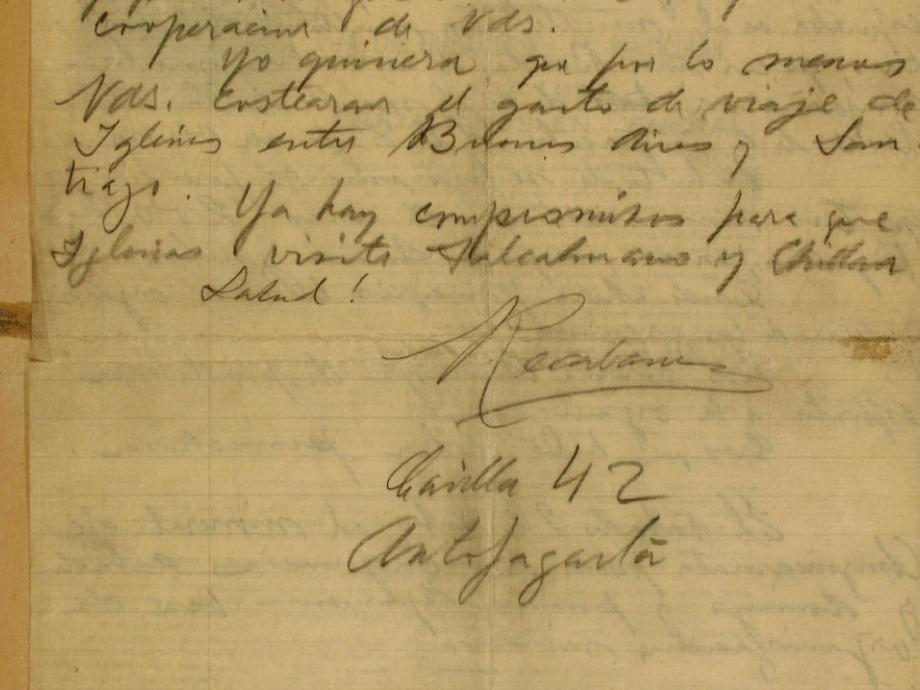 cooperacion de Vds.
Yo quisiera que por lo menos
Vds. costearan el gasto de viaje de
Iglesias entre Buenos Aires y San
tiago.
Ya hay compromisos para que
Iglesias visite Talcahuano y Chillan
Salud!
Recabarren
Casilla 42
Antofagasta